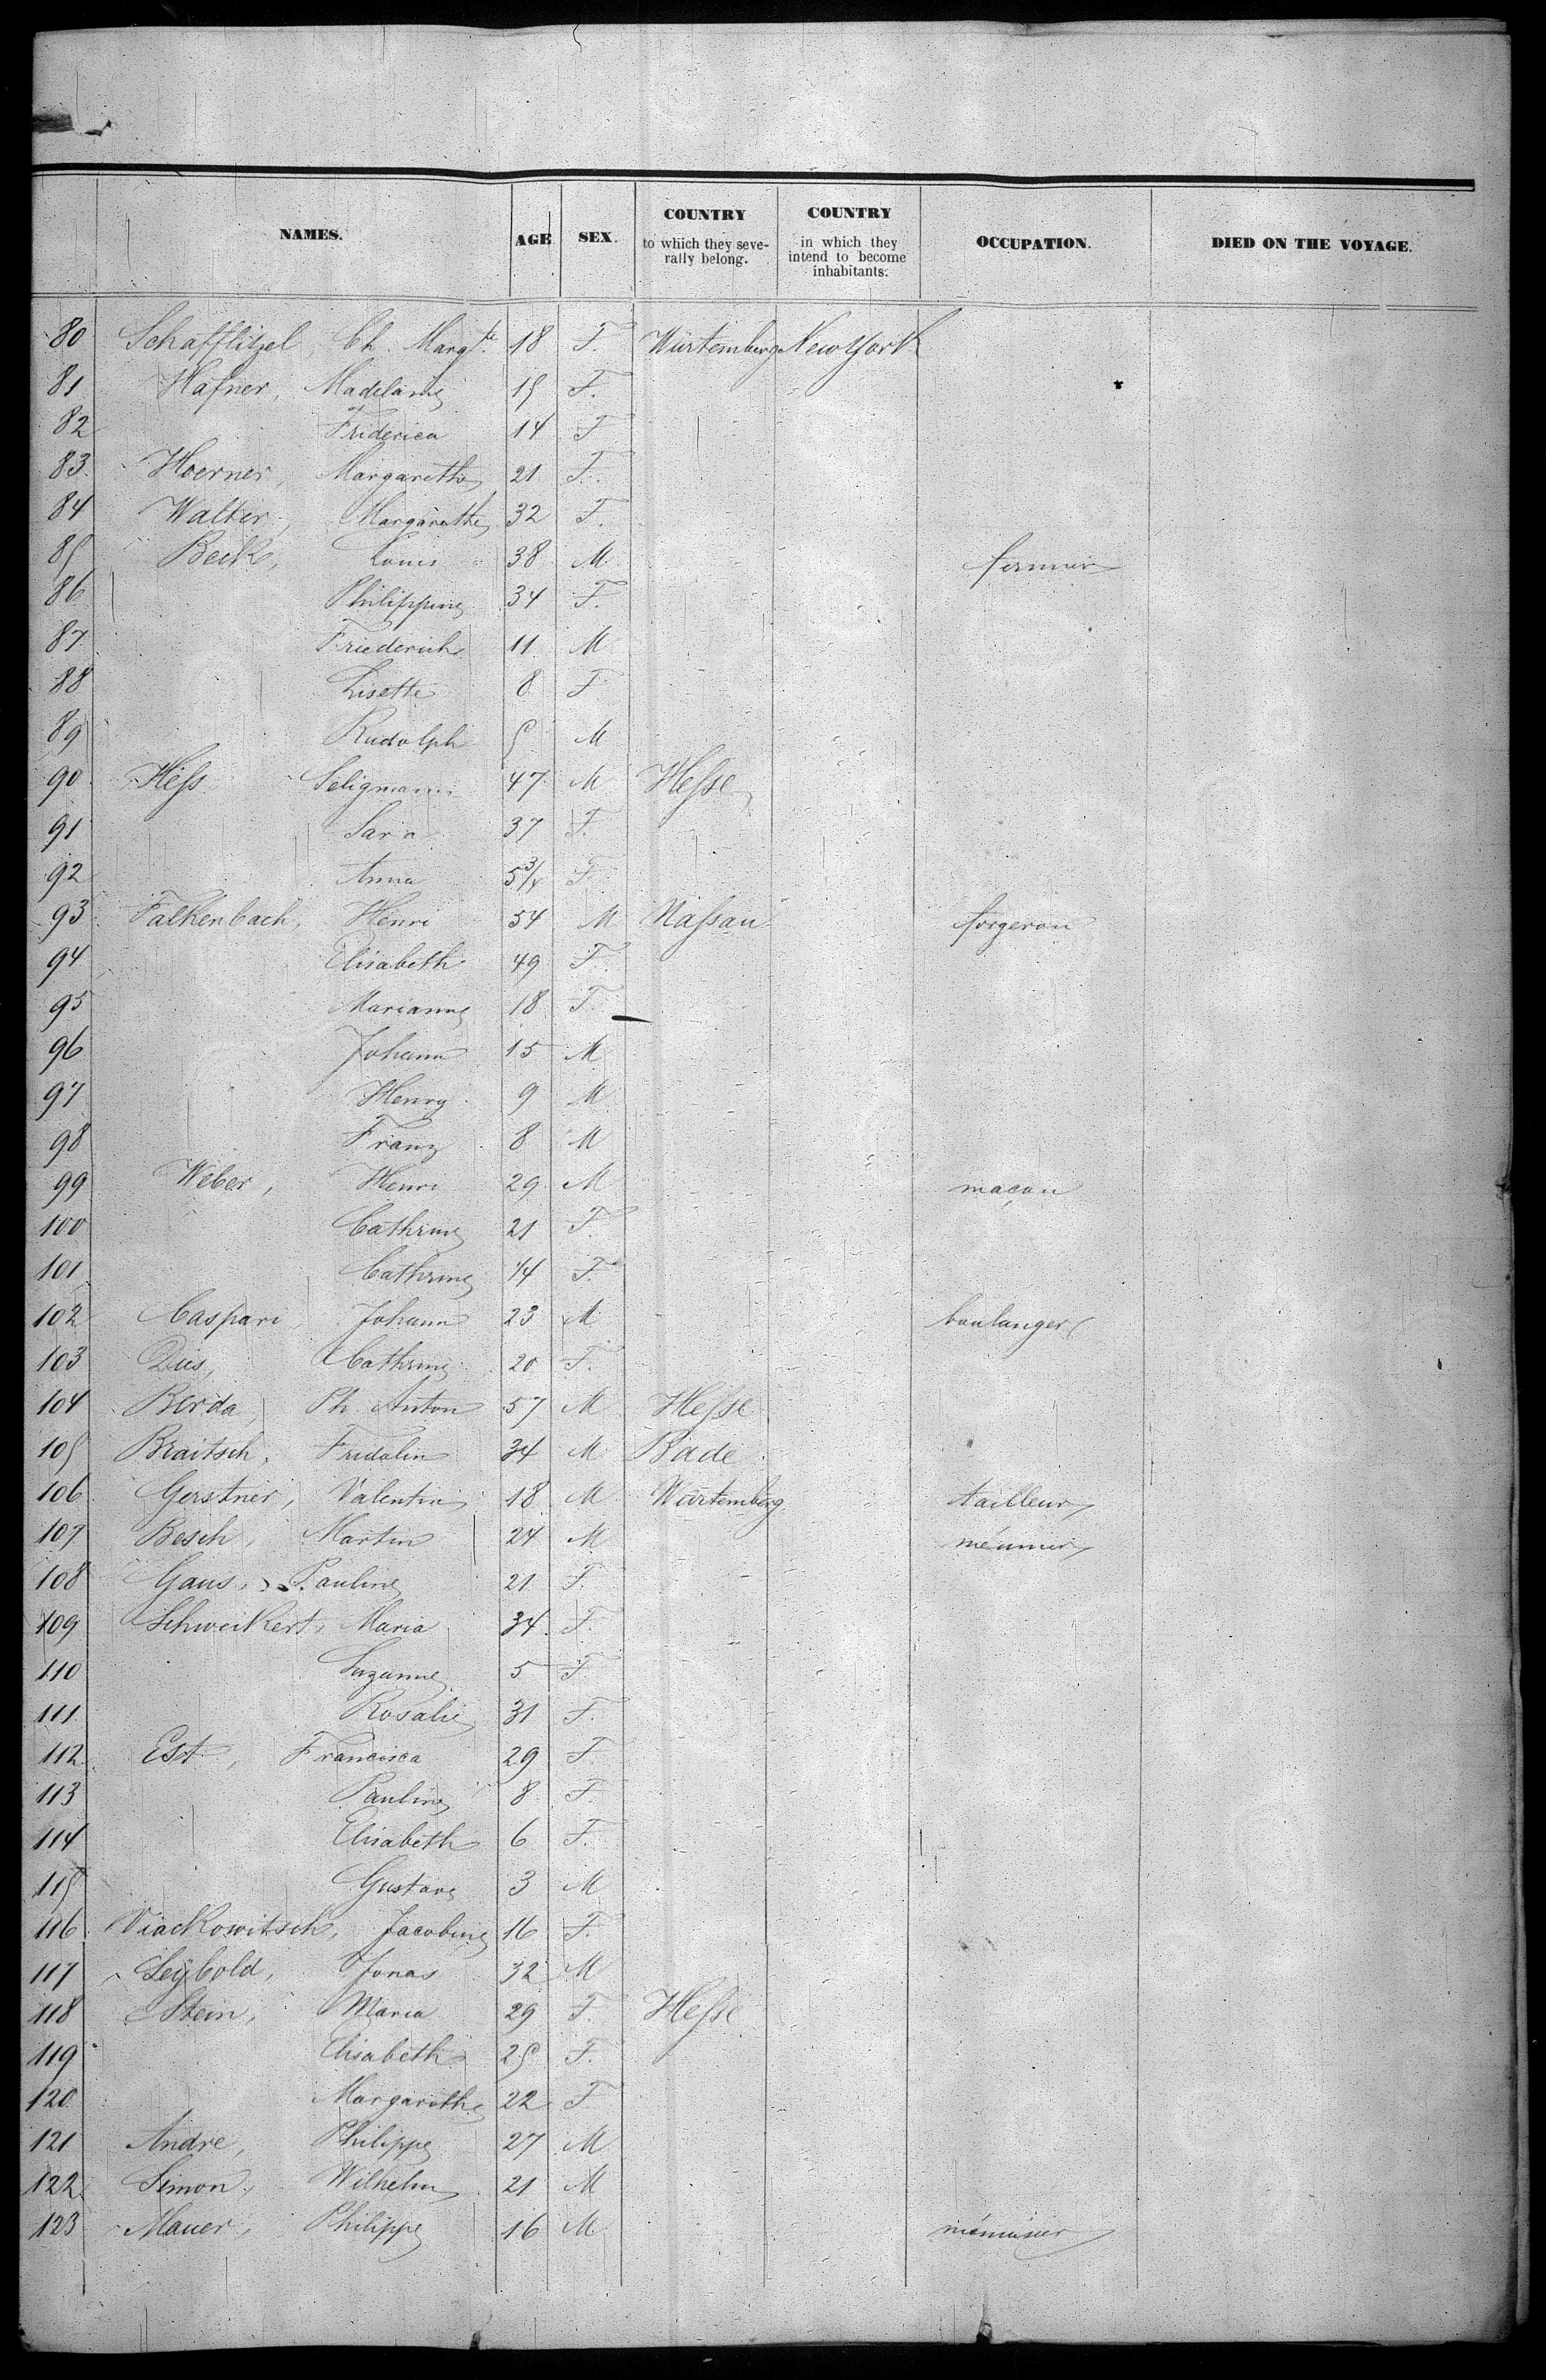 NAMES. AGE SEX. COUNTRY to which they severally belong. COUNTRY in which they intend to become inhabitants. OCCUPATION. DIED ON THE VOYAGE.
80 Schafflitzel Ch. Margte. 18 F. Würtemberg New York
81 Hafner, Madelaine 15 F.
82 Friderica 14 F
83 Hoerner, Margarethe 21 F.
84 Walter, Margarethe 32 F.
85 Beck, Louis 38 M fermier
86 Philippine 34 F.
87 Friederich 11 M
88 Lisette 8 F
89 Rudolph 5 M
90 Heſs Seligmann 47 M Heſse
91 Sara 37 F.
92 Anna 5 3/4 F
93 Falkenbach, Henri 54 M Naſsau forgeron
94 Elisabeth 49 F.
95 Marianne 18 F.
96 Johann 15 M
97 Henry 9 M
98 Franz 8 M
99 Weber, Henri 29 M maçon
100 Cathrine 21 F.
101 Cathrine F.
102 Caspari Johann 23 M boulanger
103 Cathrine 20 F.
104 Berda, Ph. Anton 57 M Heſse
105 Braitsch, Fridolin 34 M Bade
106 Gerstner, Valentin 18 M Würtemberg tailleur
107 Besch, Martin 24 M méunier
108 Gaus, Pauline 21 F.
109 Schweikert, Maria 34 F.
110 Suzanne 5 F
111 Rosalie 31 F.
112 Est, Francisca 29 F
113 Pauline 8 F.
114 Elisabeth 6 F.
115 Gustave 3 M
116 Viackowitsch, Jacobine 16 F.
117 Seybold, Jonas 32 M
118 Stein, Maria 29 F. Heſse
119 Elisabeth 25 F.
120 Margarethe 22 F
121 Andre, Philippe 27 M
122 Simon, Wilhelm 21 M
123 Mauer, Philippe 16 M ménuisier